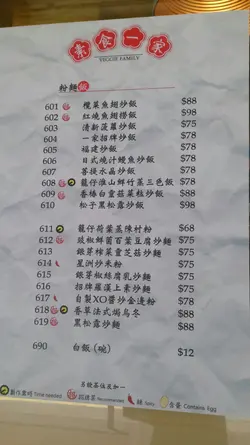 素食一家
VEGGIE FAMILY
粉麵飯
601 欖菜魚翅炒飯 $88
602 紅燒魚翅撈飯 $98
603 清新菠蘿炒飯 $75
604 一家招牌炒飯 $75
605 福建炒飯 $75
606 日式燒汁鰻魚炒飯 $75
607 菩提水晶炒飯 $75
608 龍仔淮山鮮竹蒸三色飯 $78
609 香椿白靈菇菜粒炒飯 $88
610 松子黑松露炒飯 $98
611 龍仔荷葉蒸陳村粉 $68
612 豉椒鮮菌百葉豆腐炒麵 $75
613 銀芽榨菜靈芝菇炒麵 $75
614 星洲炒米粉 $75
615 銀芽椒絲腐乳炒麵 $75
616 招牌羅漢上素炒麵 $75
617 自製XO醬炒金邊粉 $78
618 香草法式焗烏冬 $88
619 黑松露炒麵 $88
690 白飯(碗) $12
另設茶位淡加一
製作需時 Time needed
招牌菜 Recommended
辣 Spicy
含蛋 Contains Egg